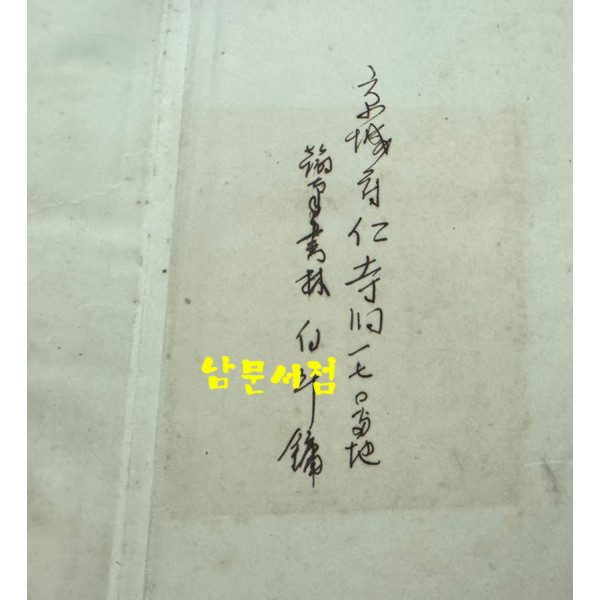 京城府仁寺洞一七〇番地
翰南書林 白斗鏞
남문서점